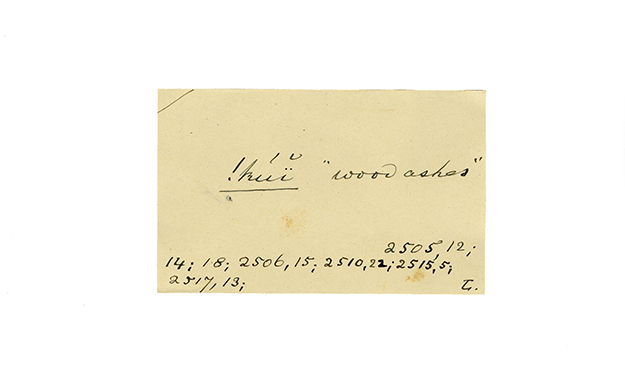 !kúï̆ "wood ashes"
2505, 12;
14; 18; 2506, 15; 2510, 22; 2515, 5;
2517, 13;
L.